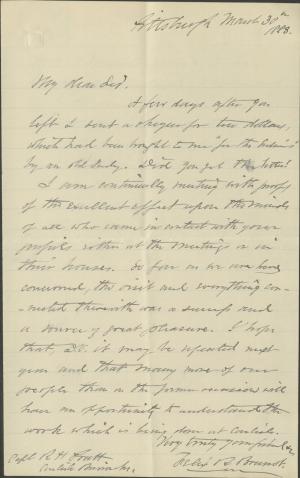 Pittsburgh March 30th
1883.
My dear Sir.
A few days after you
left I sent a cheque for two dollars,
which had been brought to me "for the Indians"
by an old lady. Did you get the letter?
I am continually meeting with proofs
of the excellent effect upon the minds
of all who came in contact with your
pupils either at the meetings or in
their houses. So far as we are here
concerned, the visit and everything con-
nected therewith was a success and
a source of great pleasure. I hope
that, it may be repeated next
year and that many more of our
people than on the former occasion will
have an opportunity to understand the
work which is being done at Carlisle.
Very truly yours
Felix R. Brunot.
Capt R H Pratt
Carlisle Barracks.